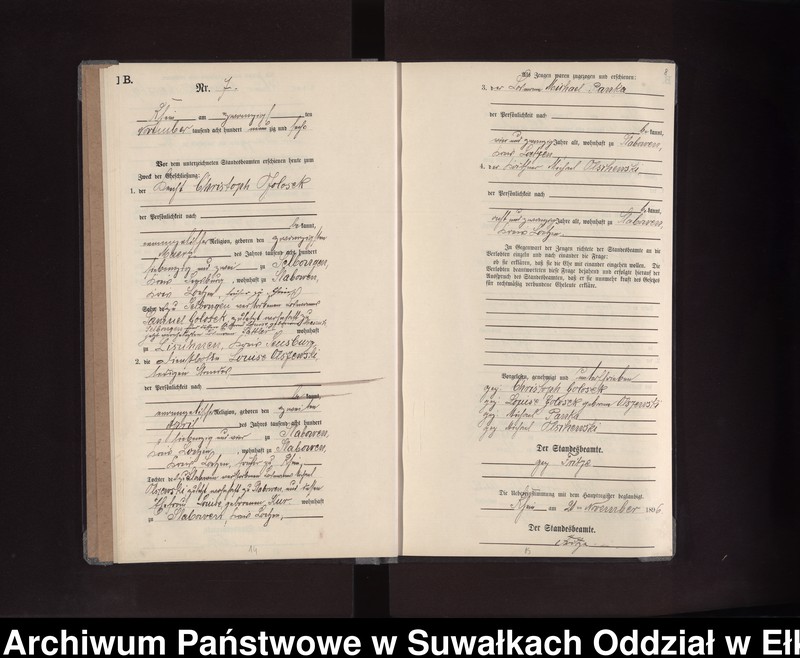 B.
Nr. 7.
Rhein am zwanzigsten
November tausend acht hundert neunzig und sechs
Vor dem unterzeichneten Standesbeamten erschienen heute zum
Zweck der Eheschließung:
1. der Christoph Golosek
der Persönlichkeit nach
be kannt,
evangelischer Religion, geboren den zwanzigsten
des Jahres tausend acht hundert
siebenzig und zwei zu Selbongen,
Kreis Sensburg, wohnhaft zu Slabowen,
Kreis Loetzen, früher zu
Sohn des zu Selbongen verstorbenen
Samuel Golosek, zuletzt wohnhaft zu
Selbongen
wohnhaft
zu Kreis Sensburg
2. die Louise Olszewski
ledigen Standes
der Persönlichkeit nach
be kannt,
evangelischer Religion, geboren den zweiten
April des Jahres tausend acht hundert
siebenzig und vier zu Slabowen,
Kreis Loetzen, wohnhaft zu Slabowen,
Kreis Loetzen, früher zu Rhein
Tochter des zu Slabowen verstorbenen
Olszewski zuletzt wohnhaft zu Slabowen, und dessen
Ehefrau Louise geborenen wohnhaft
zu Slabowen, Kreis Loetzen,
14
Als Zeugen waren zugezogen und erschienen:
3. der Michael Panka
der Persönlichkeit nach
be kannt,
vier und zwanzig Jahre alt, wohnhaft zu Slabowen,
Kreis Loetzen
4. der Michael Olschewski
der Persönlichkeit nach
be kannt,
und zwanzig Jahre alt, wohnhaft zu Slabowen,
Kreis Loetzen.
In Gegenwart der Zeugen richtete der Standesbeamte an die
Verlobten einzeln und nach einander die Frage:
ob sie erklären, daß sie die Ehe mit einander eingehen wollen. Die
Verlobten beantworteten diese Frage bejahend und erfolgte hierauf der
Ausspruch des Standesbeamten, daß er sie nunmehr kraft des Gesetzes
für rechtmäßig verbundene Eheleute erkläre.
Vorgelesen, genehmigt und unterschrieben
gez. Christoph Golosek
gez. Louise Golosek geborene Olszewski
gez. Michael Panka
gez. Michael Olschewski
Der Standesbeamte.
gez. Tritze
Die Uebereinstimmung mit dem Hauptregister beglaubigt.
Rhein am 20ten November 1896
Der Standesbeamte.
Tritze
Archiwum Państwowe w Suwałkach Oddział w Ełk